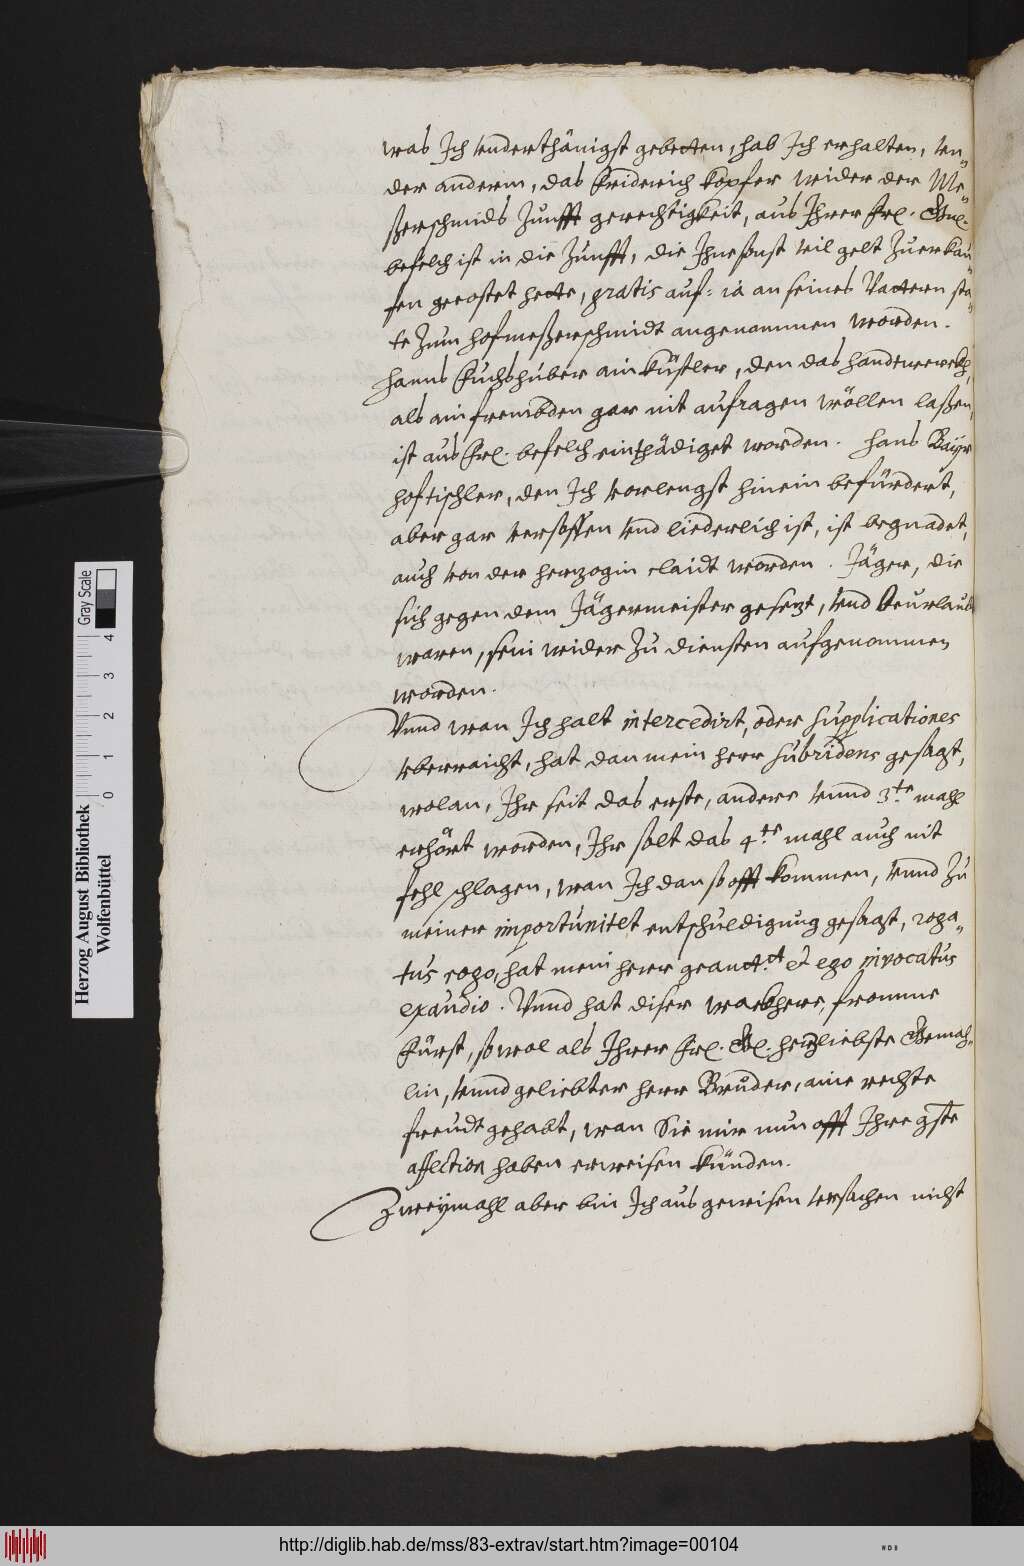 was Ich vnderthänigst gebetten, hab Ich erhalten, vn„
der anderm, das Friderich Kopfer wider der Me„
ßerschmids Zunfft gerechtigkeit, aus Ihrer frl. Gne.
befelch ist in die Zunfft, die Ihne sonst vil gelt Zuerkau„
fen gecostet hette, gratis auf: ia an seines Vattern sta„
te Zum hofmeßerschmidt angenommen worden.
Hanns Fuchshuber ain Küstler, den das handtwerckh,
als ain frembden gar nit aufragen wöllen laßen,
ist aus frl. befelch einthädiget worden. Hans Bayr
hoftischler, den Ich vorlengst hinein befürdert,
aber gar versoffen vnd liederlich ist, ist begnadet,
auch von der herzogin claidt worden. Jäger, die
sich gegen dem Jägermeister gesezt, vnd beurlaubt
waren, sein wider Zu diensten aufgenommen
worden.
Vnnd wan Ich halt intercedirt, oder supplicationes
vberraicht, hat dan mein herr subridens gesagt,
wolan, Ihr seit das erste, andere vnnd 3.te mahl
erhört worden, Ihr solt das 4.te mahl auch nit
fehl schlagen, wan Ich dan so offt kommen, vnnd Zu
meiner importunitet entschuldigung gesagt, roga„
tus rogo, hat mein herr geantt. et ego invocatus
exaudio. Vnnd hat diser wackhere, fromme
Fürst, so wol als Ihrer frl. Gl. herzliebste Gemah„
lin, vnnd geliebter herr Bruder, aine rechte
freudt gehabt, wan Sie mir nun offt Ihre gste
affection haben erweisen künden.
Zweymahl aber bin Ich aus gewisen vrsachen nicht
Herzog August Bibliothek
Wolfenbüttel
0 1 2 3 4
Gray Scale
http://diglib.hab.de/mss/83-extrav/start.htm?image=00104